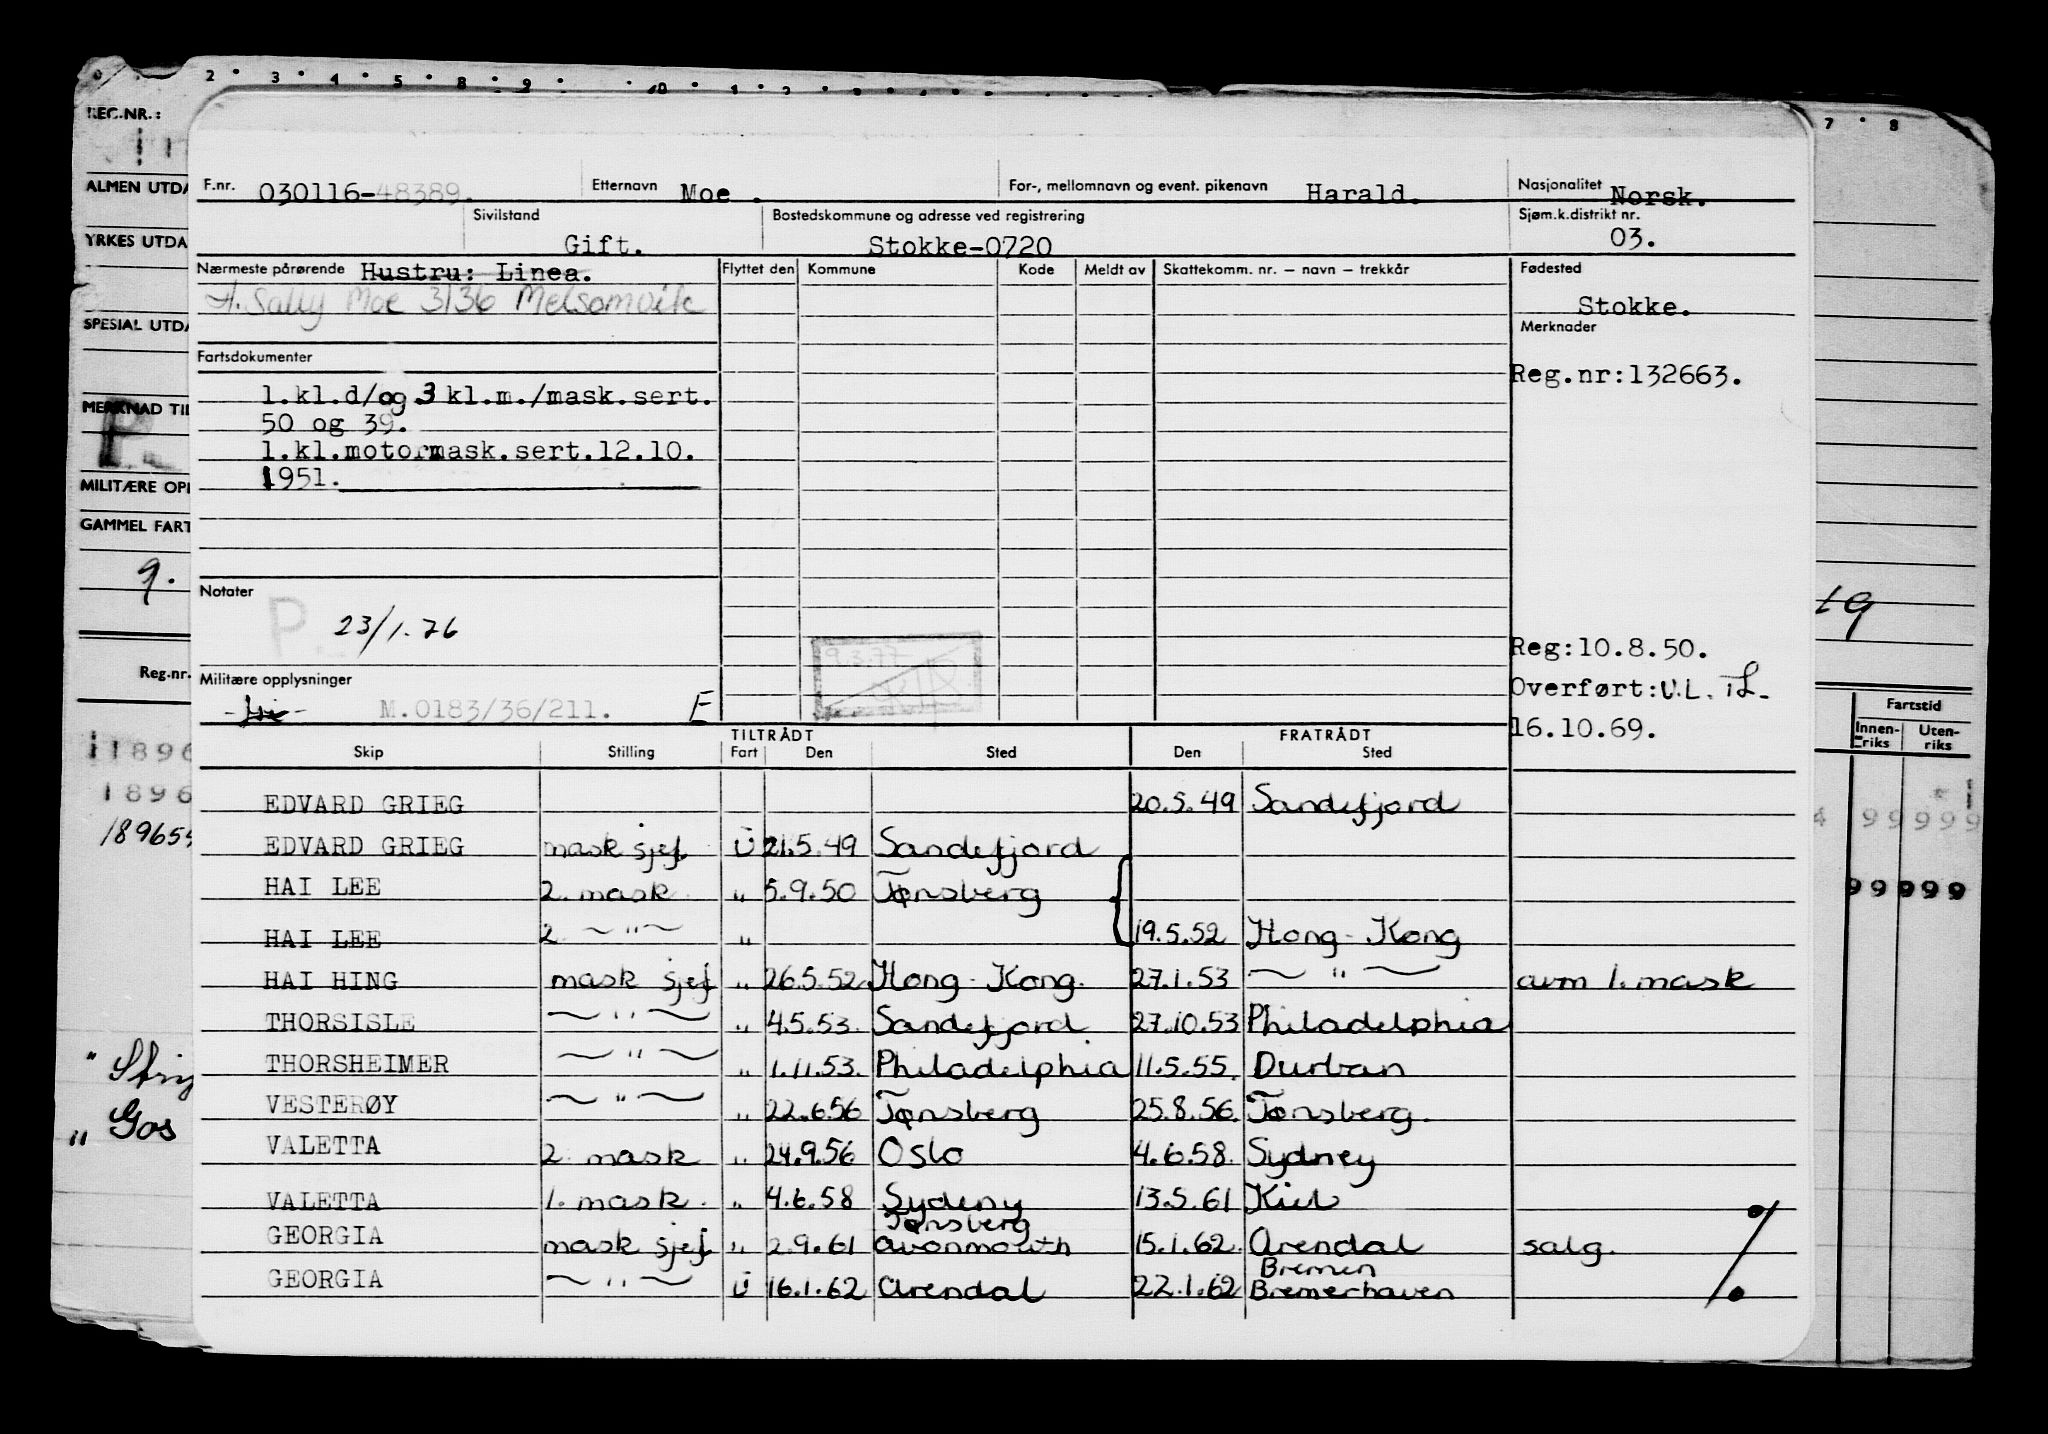 2 3 4 5 8 9
7 8
REG.NR.:
ALMEN UTDA
YRKES UTDA
SPESIAL UTDA
MERKNAD TIL
P
MILITÆRE OPP
GAMMEL FART
9.
Reg.nr.
11896
1896
18965
" Gos
F.nr. 030116-48389. Etternavn Moe . For-, mellomnavn og event. pikenavn Harald. Nasjonalitet Norsk.
Sivilstand Gift. Bostedskommune og adresse ved registrering Stokke-0720 Sjøm.k.distrikt nr. 03.
Nærmeste pårørende Hustru: Linea. Flyttet den Kommune Kode Meldt av Skattekomm. nr. – navn – trekkår Fødested
Sally Moe 3136 Melsomvik
Stokke.
Merknader
Fartsdokumenter
Reg.nr:132663.
1.kl.d/og 3 kl.m./mask.sert.
50 og 39.
1.kl.motormask.sert.12.10.
1951.
Notater
P 23/1.76
9.3.77
Reg:10.8.50.
Militære opplysninger
M.0183/36/211. E
Overført:U.L. TL-
16.10.69.
19
TILTRÅDT FRATRÅDT
Skip Stilling Fart Den Sted Den Sted
Fartstid
Innen-riks Uten-riks
EDVARD GRIEG 20.5.49 Sandefjord
EDVARD GRIEG mask sjef U 21.5.49 Sandefjord
HAI LEE 2. mask " 5.9.50 Tønsberg
HAI LEE 2 — " — " 19.5.52 Hong-Kong
HAI HING mask sjef " 26.5.52 Hong-Kong. 27.1.53 — " — avm 1. mask
THORSISLE — " — " 4.5.53. Sandefjord 27.10.53 Philadelphia
THORSHEIMER — " — " 1.11.53. Philadelphia 11.5.55. Durban
VESTERØY — " — " 22.6.56 Tønsberg 25.8.56. Tønsberg.
VALETTA 2. mask " 24.9.56 Oslo 4.6.58. Sydney
VALETTA 1. mask. " 4.6.58 Sydeny 13.5.61 Kiel
GEORGIA mask sjef " 2.9.61 Tønsberg avonmouth 15.1.62. Arendal salg.
GEORGIA — " — U 16.1.62 Arendal 22.1.62 Bremen Bremerhaven
4 99999
99999